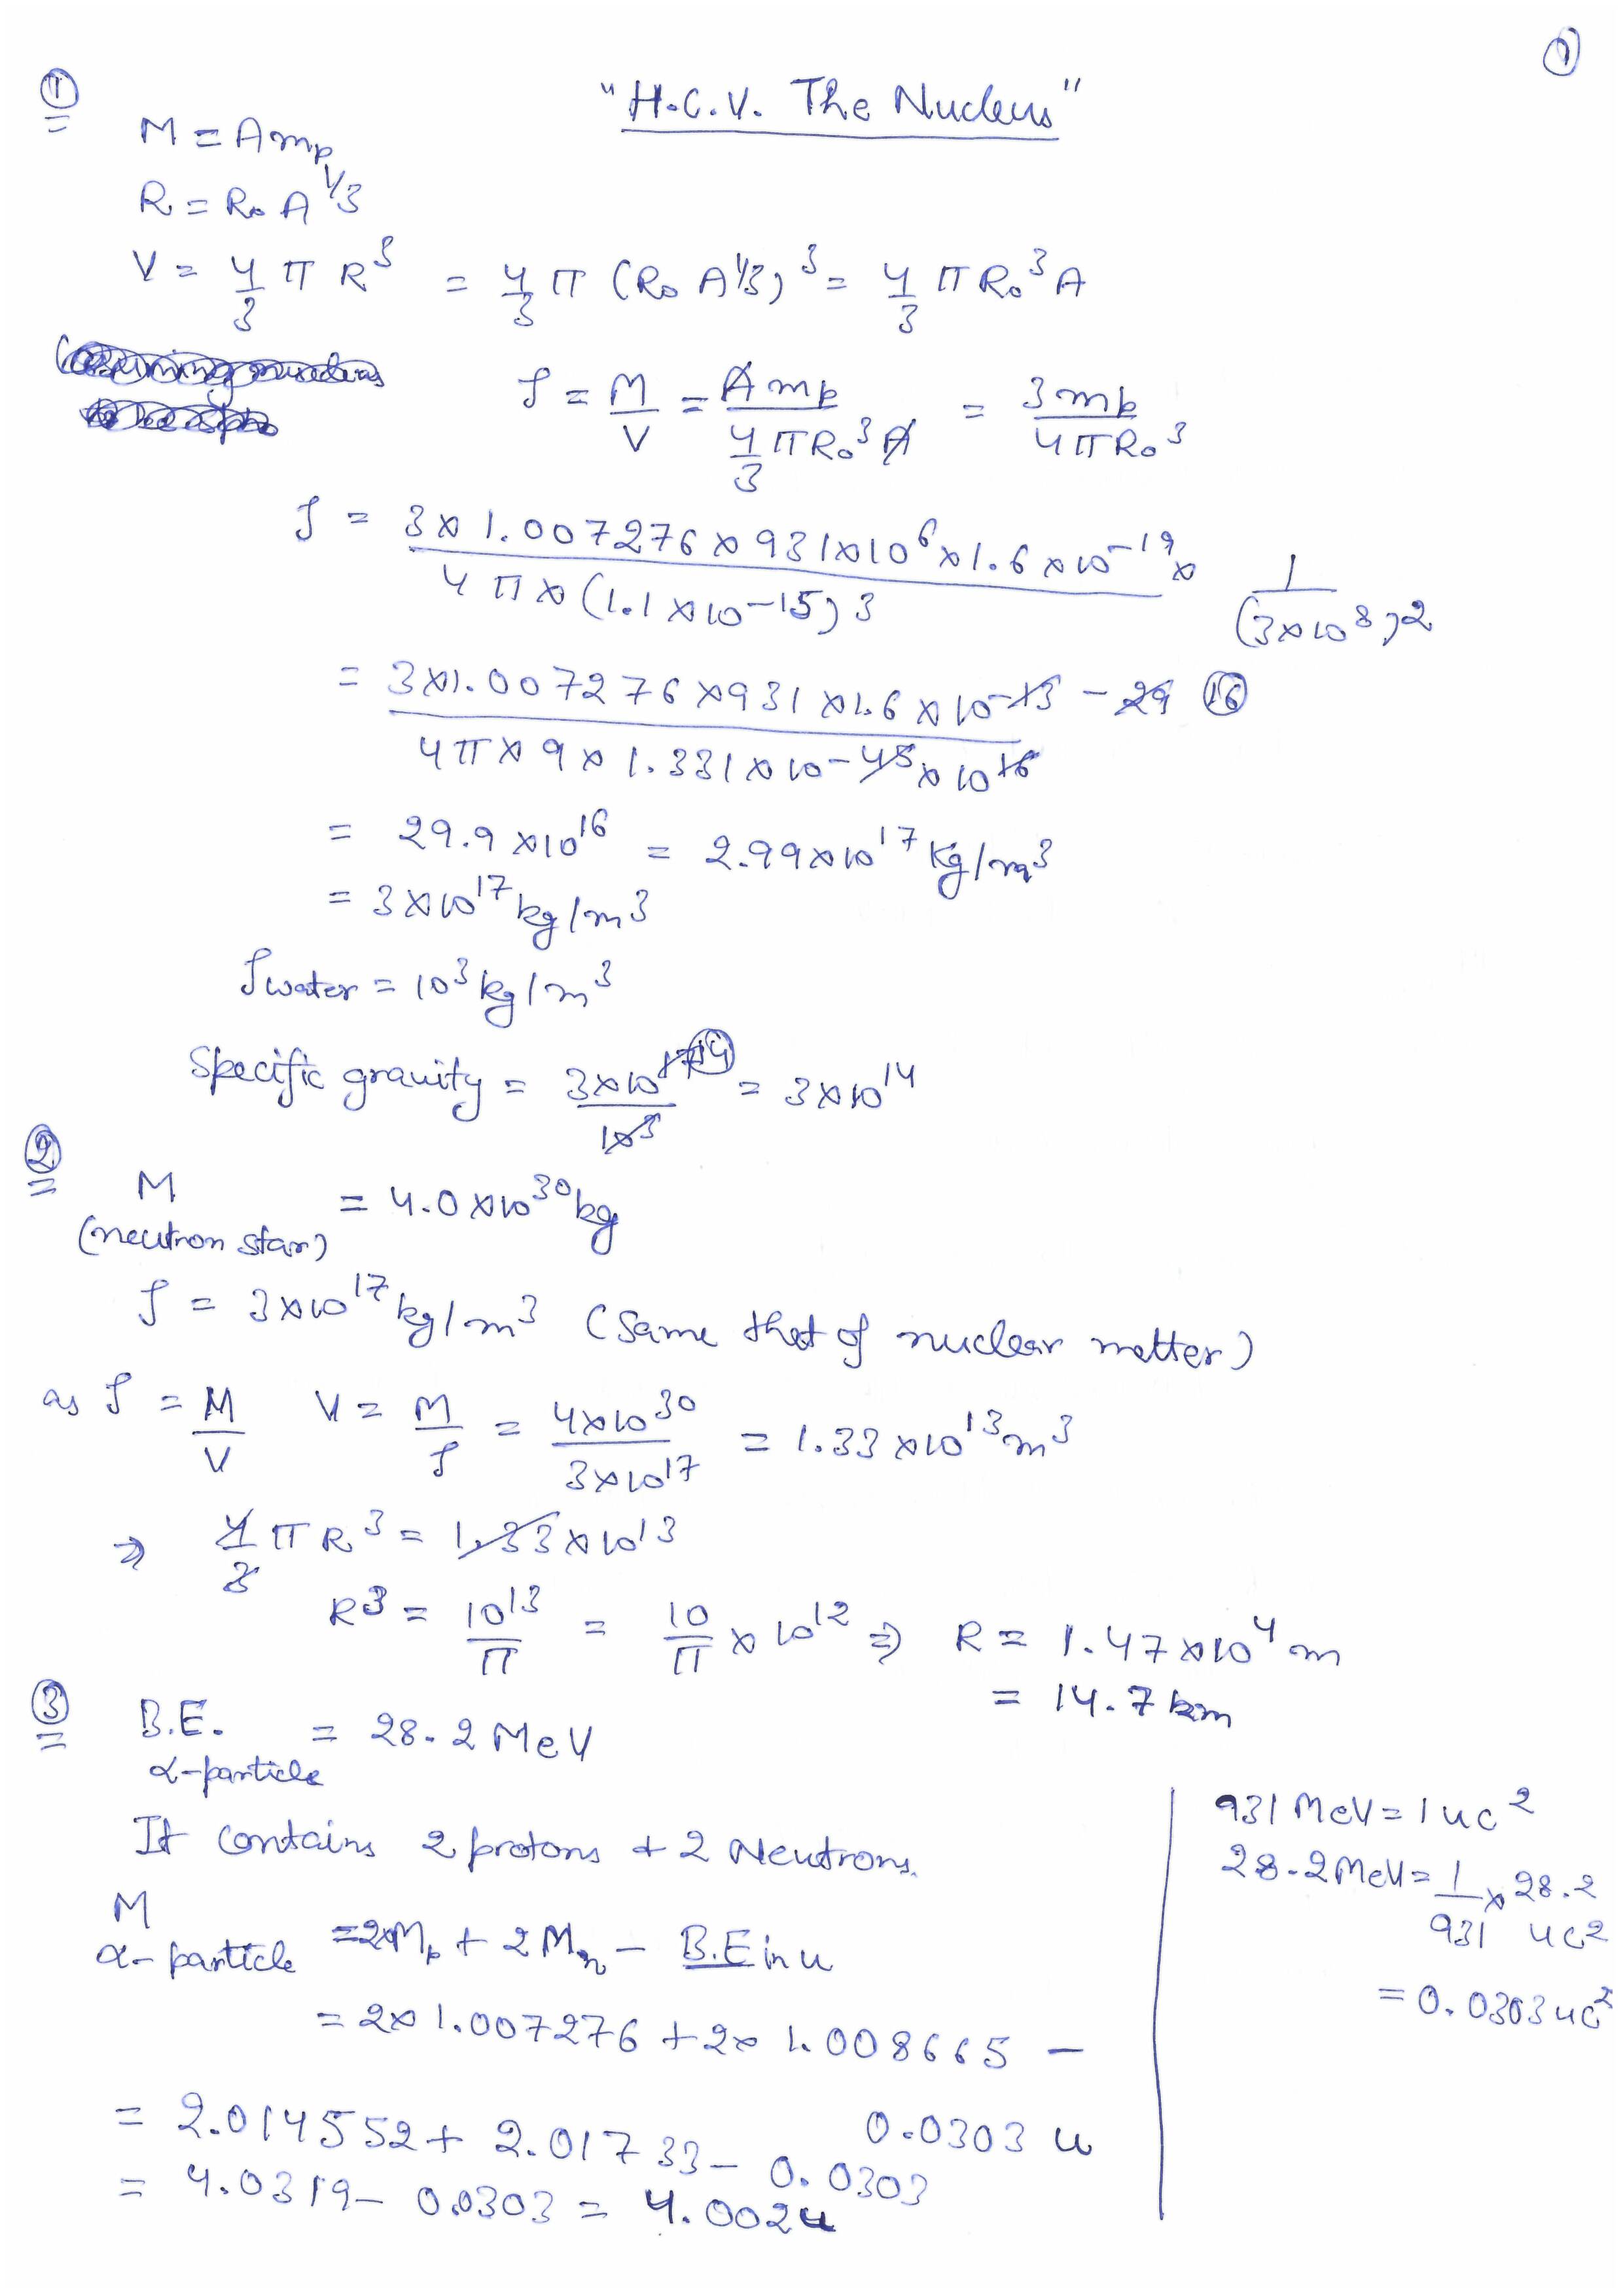 ①
①
"H.C.V. The Nucleus"
M = Amp
R = R₀ A^1/3
V = 4/3 π R³ = 4/3 π (R₀ A^1/3)³ = 4/3 π R₀³ A
ρ = M/V = A mp / (4/3 π R₀³ A) = 3mp / 4πR₀³
ρ = 3 × 1.007276 × 931 × 10⁶ × 1.6 × 10⁻¹⁹ / 4π × (1.1 × 10⁻¹⁵)³ × 1/(3×10⁸)²
= 3×1.007276 × 931 × 1.6 × 10⁻¹³ - 29 ⑯ / 4π × 9 × 1.331 × 10⁻⁴⁵ × 10¹⁶
= 29.9 × 10¹⁶ = 2.99 × 10¹⁷ Kg/m³
= 3 × 10¹⁷ kg/m³
ρwater = 10³ kg/m³
Specific gravity = 3×10¹⁷ ⑭ / 10³ = 3×10¹⁴
②
M (neutron star) = 4.0 × 10³⁰ kg
ρ = 3×10¹⁷ kg/m³ (Same that of nuclear matter)
as ρ = M/V V = M/ρ = 4×10³⁰ / 3×10¹⁷ = 1.33 × 10¹³ m³
⇒ 4/3 π R³ = 1.33 × 10¹³
R³ = 10¹³/π = 10/π × 10¹² ⇒ R = 1.47 × 10⁴ m
= 14.7 km
③
B.E. α-particle = 28.2 MeV
It contains 2 protons + 2 Neutrons.
M α-particle = 2Mp + 2Mn - B.E in u
= 2× 1.007276 + 2× 1.008665 - 0.0303 u
= 2.014552 + 2.01733 - 0.0303
= 4.0319 - 0.0303 = 4.002u
931 MeV = 1 uc²
28.2 MeV = 1/931 × 28.2 uc²
= 0.0303 uc²